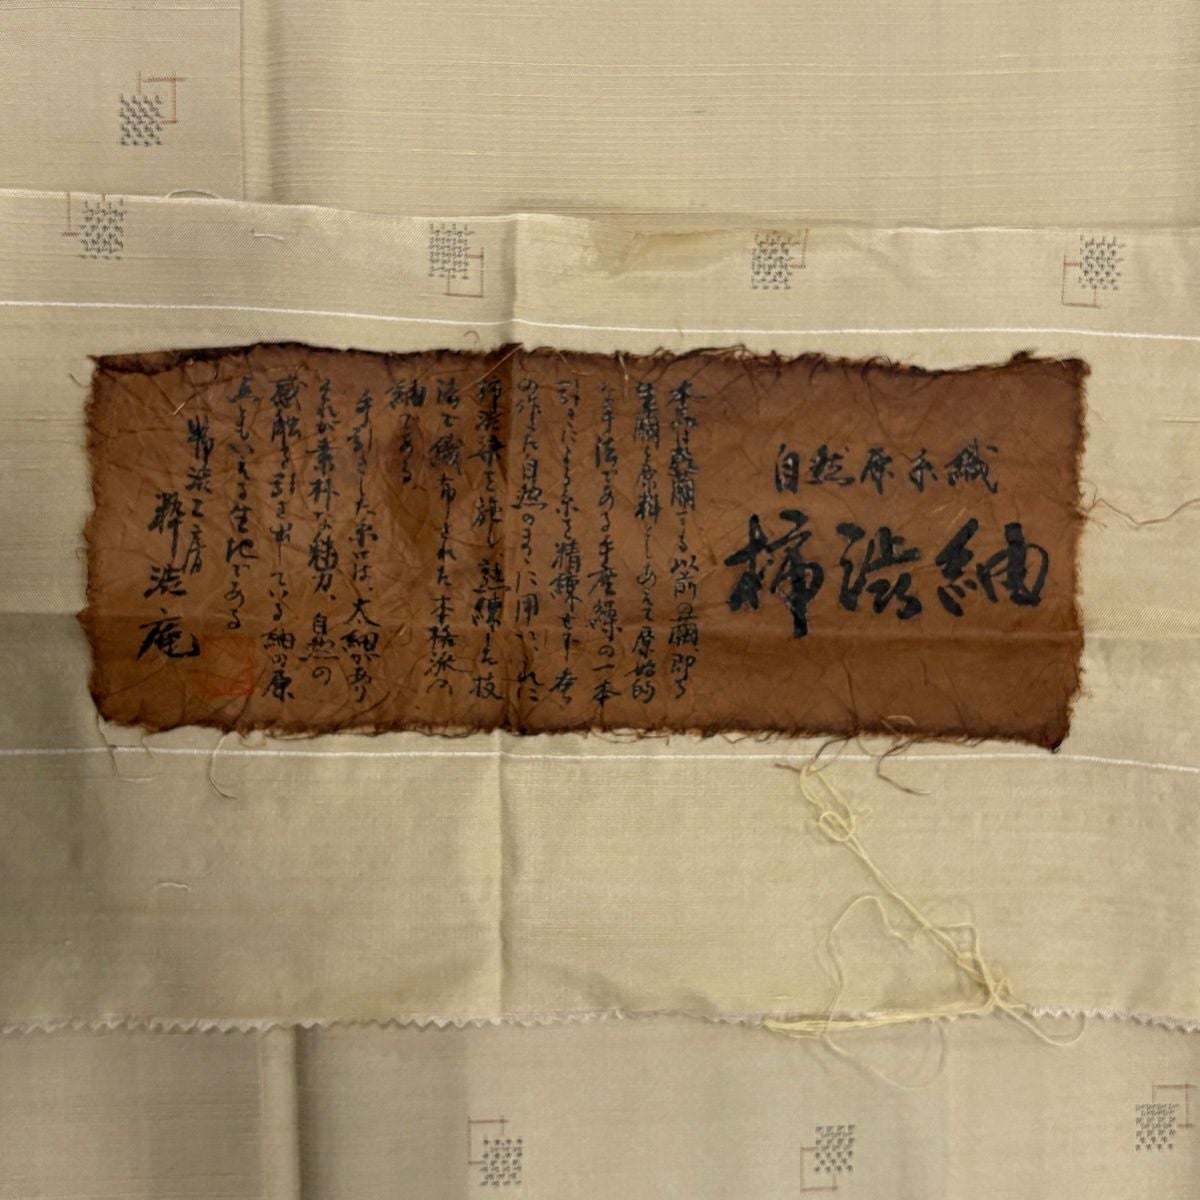 自然原糸織
柿渋紬
本品は乾繭する以前の繭即ち
生繭を原料としあえて原始的
な手法である手座繰の一本
引きによる糸を精練せず
の作った自然のままに用い、れに
柿渋染を施し、熟練した技
法で織布された本格派の
紬である
手引きした糸には、太細があり
それが素朴な魅力、自然の
感触を引き出している紬の原
点ともいえる生地である
柿渋工房
粋渋庵